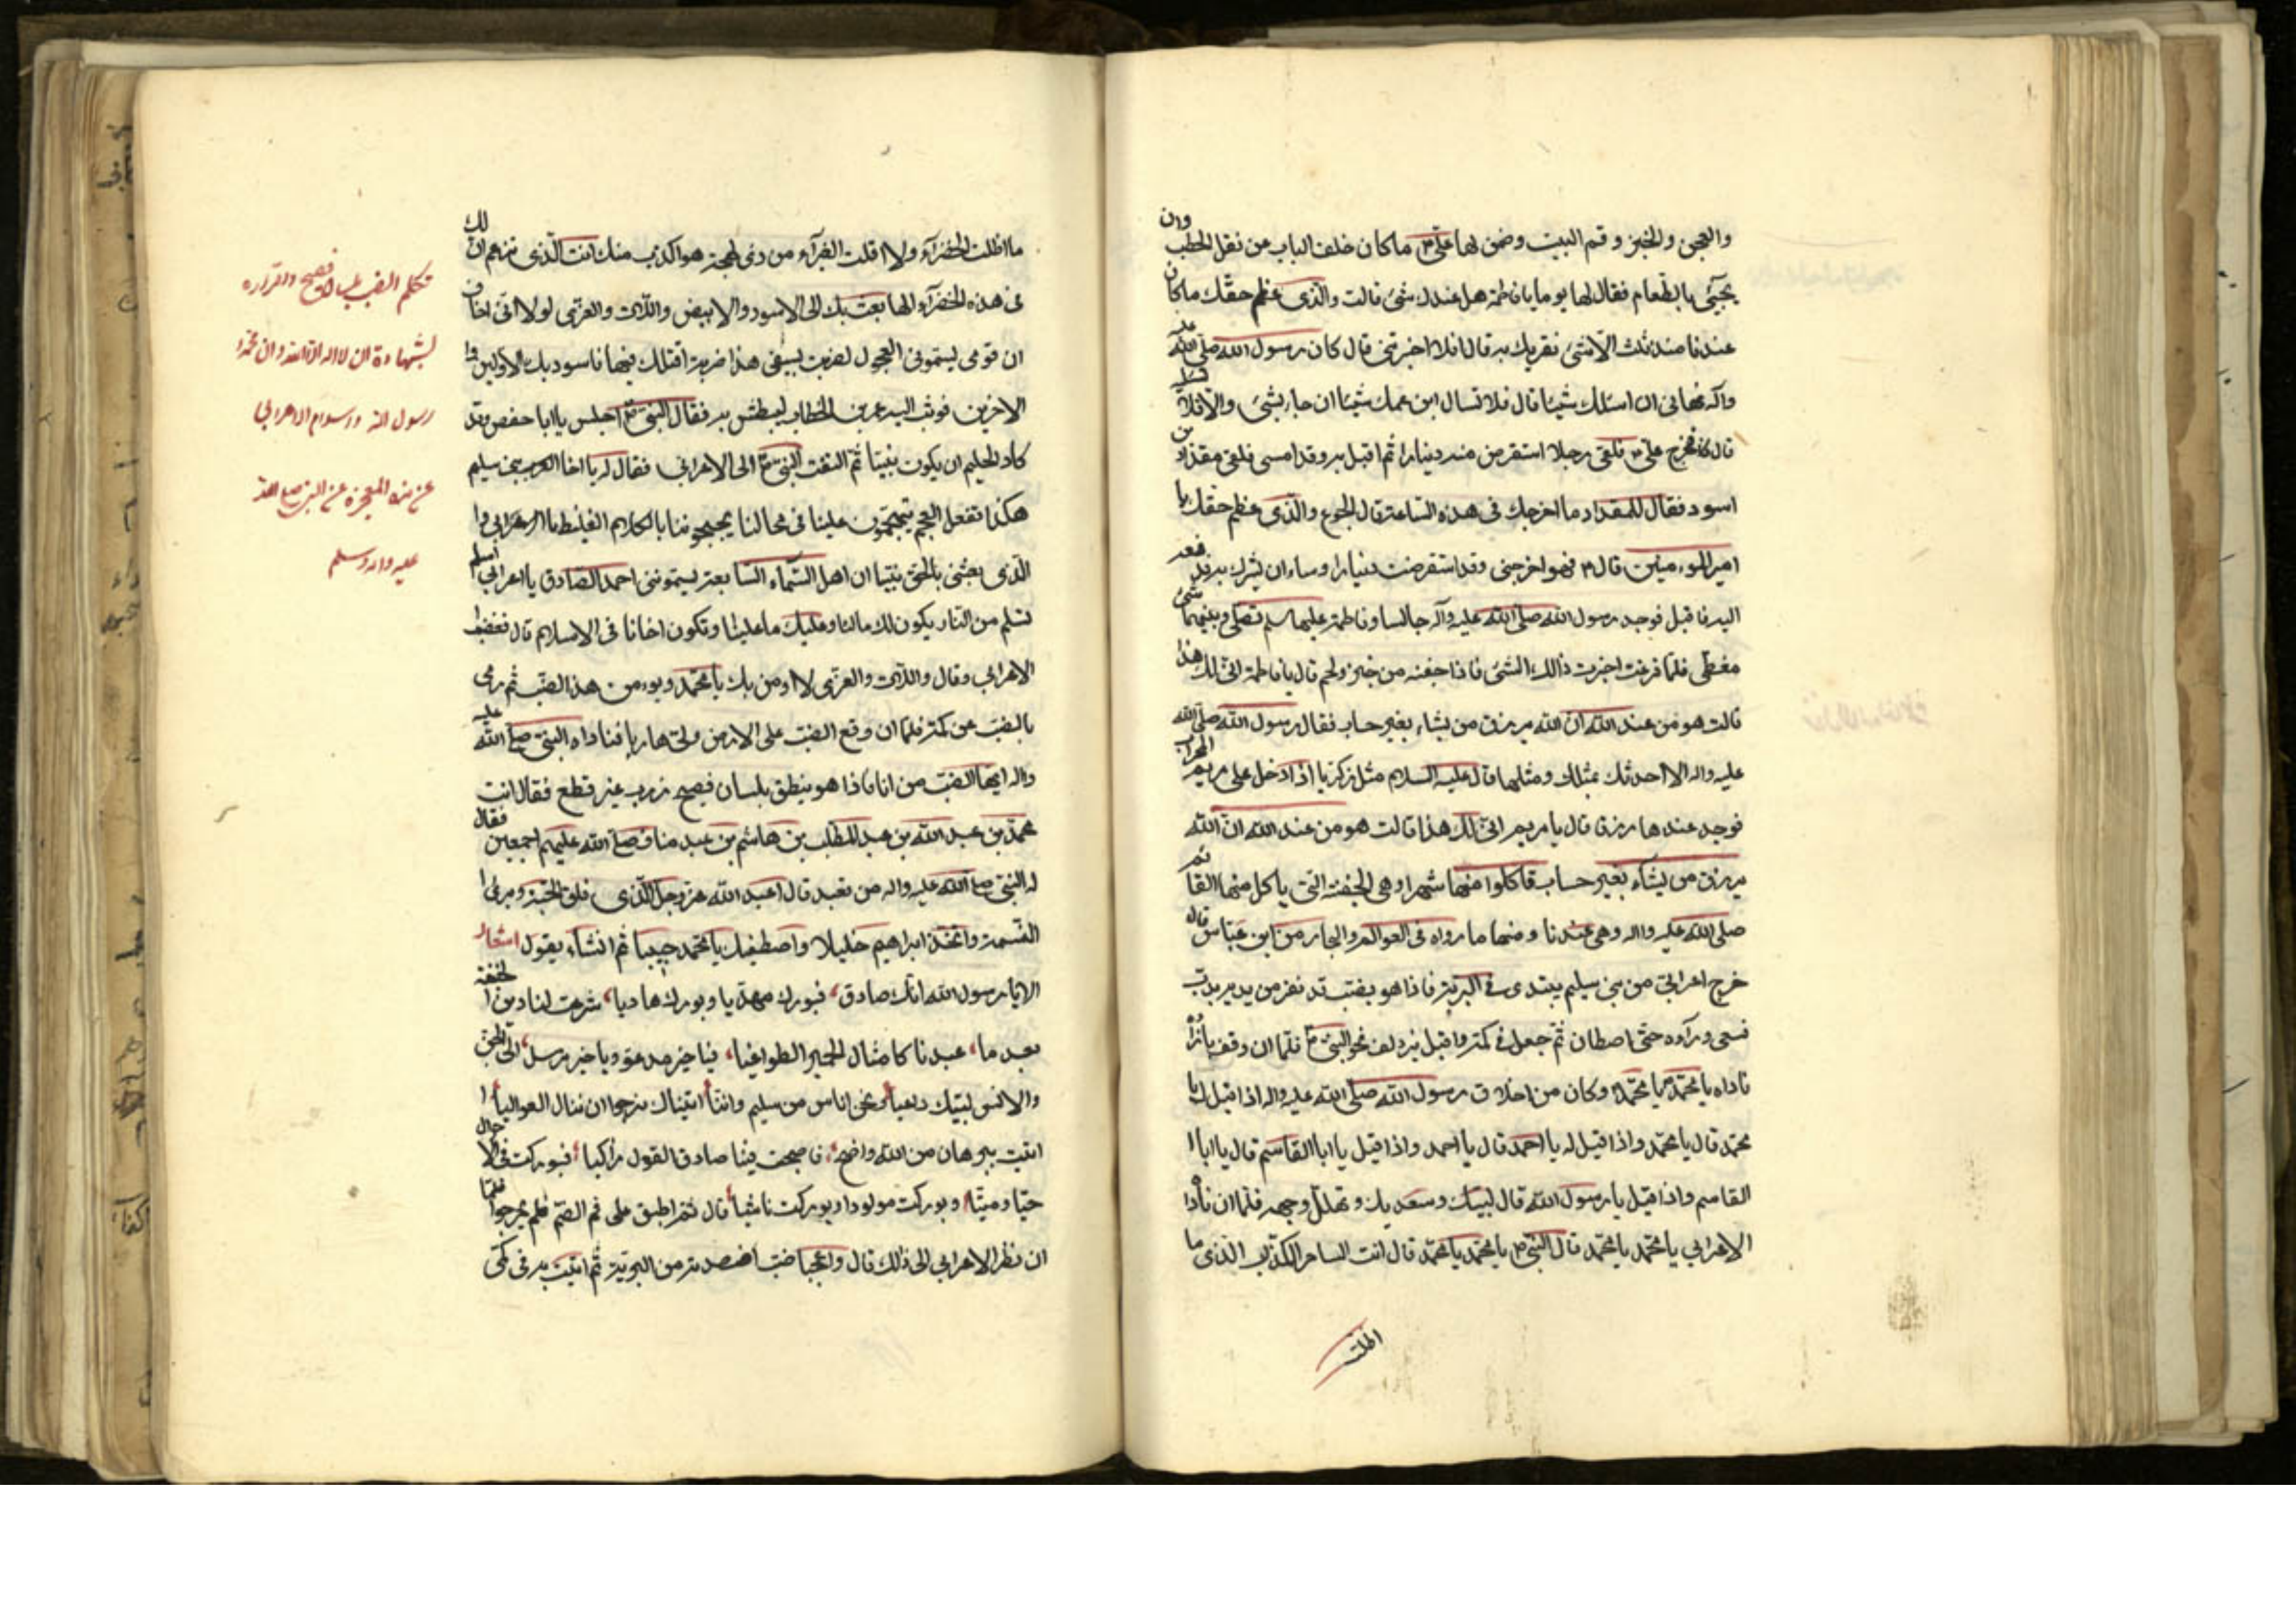 والعجن والخبز وقم البيت وضمن لها علي ع ما كان خلف الباب من نقل الحطب وان
يجيئ بالطعام فقال لها يوما يا فاطمة هل عندك شئ قالت والذى عظم حقك ما كان
عندنا منذ ثلث الا شئ نقريك به قال افلا اخبرتنى قال كان رسول الله صلى الله عليه
وآله نهانى ان اسئلك شيئا قال فلا تسال ابن عمك شيئا ان جاء بشئ والا فلا
قال فخرج على ع فلقى رجلا استقرض منه دينارا ثم اقبل به وقد امسى فلقى مقداد بن
اسود فقال للمقداد ما اخرجك فى هذه الساعة قال الجوع والذى عظم حقك يا
امير المومنين قال ع فهو اخرجنى وقد استقرضت دينارا وساوثرك به فدفعه
اليه فاقبل فوجد رسول الله صلى الله عليه وآله جالسا وفاطمة عليها سلم تصلى وبينهما شئ
مغطى فلما فرغت اجترت ذالك الشئ فاذا جفنه من خبز ولحم قال يا فاطمة انى لك هذا
قالت هو من عند الله ان الله يرزق من يشاء بغير حساب فقال رسول الله صلى الله
عليه واله الا احدثك بمثلك ومثلها قال عليه السلام مثل زكريا اذا دخل على مريم المحراب
فوجد عندها رزقا قال يا مريم انى لك هذا قالت هو من عند الله ان الله
يرزق من يشاء بغير حساب فاكلوا منها شهرا وهى الجفنة التى ياكل منها القائم
صلى الله عليه واله وهى عندنا ومنها ما رواه فى العوالم والبحار من ابن عباس قال
خرج اعرابى من بنى سليم يبتدى فى البرية فاذا هو بضب قد نفر من يديه
فسعى ورآءه حتى اصطاده ثم جعل فى كمه واقبل يزدلف نحو النبى ص فلما ان وقف بازآئه
ناداه يا محمد يا محمد وكان من اخلاق رسول الله صلى الله عليه واله اذا قيل له يا
محمد قال يا محمد واذا قيل له يا احمد قال يا احمد واذا قيل يا ابا القاسم قال يا ابا ا
القاسم واذا قيل يا رسول الله قال لبيك وسعديك وتهلل وجهه فلما ان ناداه
الاعرابي يا محمد يا محمد قال النبي ص يا محمد يا محمد قال انت الساحر الكذاب الذى ما
اظلت
ما اظلت الخضرآء ولا اقلت الغبرآء من ذى لهجة هو اكذب منك انت الذى تزعم ان لك
فى هذه الخضرآء الها بعث بك الى الاسود والابيض واللات والعزى لولا انى اخاف
ان قومى يسمونى العجول لضربتك بسيفى هذا ضربة اقتلك فيها فاسود بك الاولين و
الاخرين فوثب اليه عمر بن الخطاب ليبطش به فقال النبى ص اجلس يا ابا حفص فقد
كاد الحليم ان يكون نبيا ثم التفت النبى ص الى الاعرابى فقال له يا اخا العرب بنى سليم
هكذا تفعل العرب يتهجمون علينا فى مجالسنا يجبهوننا بالكلام الغليظ يا اعرابى وا
الذى بعثنى بالحق نبيا ان اهل السماء السابعة يسموننى احمد الصادق يا اعرابي اسلم
تسلم من النار يكون لك مالنا وعليك ما علينا وتكون اخانا فى الاسلام قال فغضب
الاعرابي وقال واللات والعزى لا اومن بك يا محمد او يومن هذا الضب ثم رمى
بالضب عن كمه فلما ان وقع الضب على الارض ولى هاربا فناداه النبى صلى الله عليه
واله ايها الضب من انا فاذا هو ينطق بلسان فصيح ذرب غير قطع فقال انت
محمد بن عبد الله بن عبد المطلب بن هاشم بن عبد مناف صلى الله عليهم اجمعين فقال
له النبى صلى الله عليه واله من تعبد قال اعبد الله عز وجل الذى فلق الحبة وبرئ ا
النسمة واتخذ ابراهيم خليلا واصطفيك يا محمد حبيبا ثم انشاء يقول اشعار
الا يا رسول الله انك صادق، فبورك مهديا وبورك هاديا، شرعت لنا دين الحنيفة
بعد ما، عبدنا كامثال الحمير الطواغيا، فيا خير مدعو ويا خير مرسل، الى الجن
والانس لبيك داعيا، ونحن اناس من سليم واننا اتيناك نرجو ان ننال العواليا، ا
اتيت ببرهان من الله واضح، فاصبحت فينا صادق القول زاكيا، فبوركت فى الاحوال
حيا وميتا، وبوركت مولودا وبوركت ناشيا، قال ثم اطبق على فم الضب فلم يحر جوابا فلما
ان نظر الاعرابي الى ذالك قال واعجبا ضب اصطدته من البرية ثم اتيت به فى كمى
تكلم الضب بلسان فصيح واقراره
لشهادة ان لا اله الا الله وان محمدا
رسول الله واسلام الاعرابي
عن هذه المعجزة عن النبى صلى الله
عليه واله وسلم